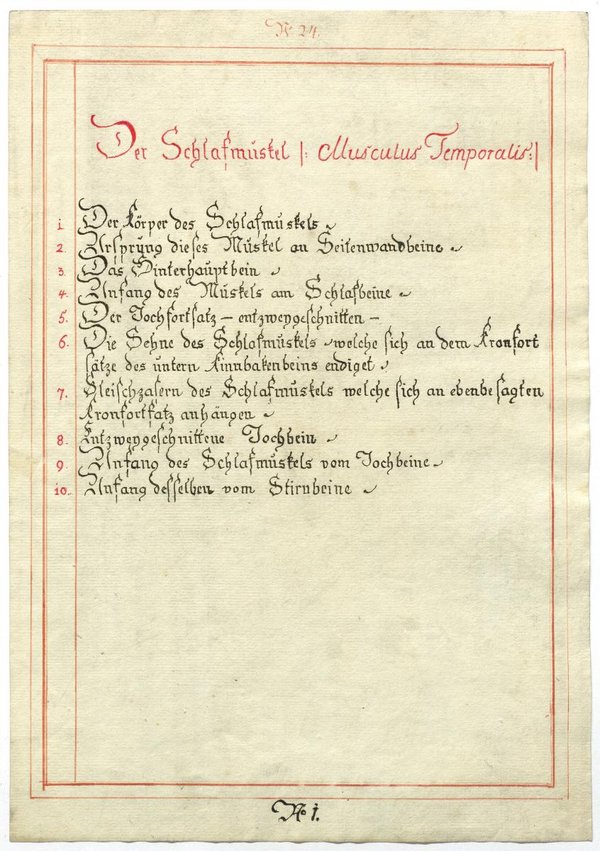 No 24.
Der Schlafmuskel |: Musculus Temporalis :|
1. Der Körper des Schlafmuskels
2. Ursprung dieses Muskel an Seitenwandbeine
3. Das Hinterhauptbein
4. Anfang des Muskels am Schlafbeine
5. Der Jochfortsatz – entzweygeschnitten –
6. Die Sehne des Schlafmuskels welche sich an dem Kronfort
sätze des untern Kinnbakenbeins endiget
7. Fleischzasern des Schlafmuskels welche sich an ebenbesagten
Kronfortsatz anhängen
8. Entzweygeschnittene Jochbein
9. Anfang des Schlafmuskels vom Jochbeine
10. Anfang desselben vom Stirnbeine
No 1.